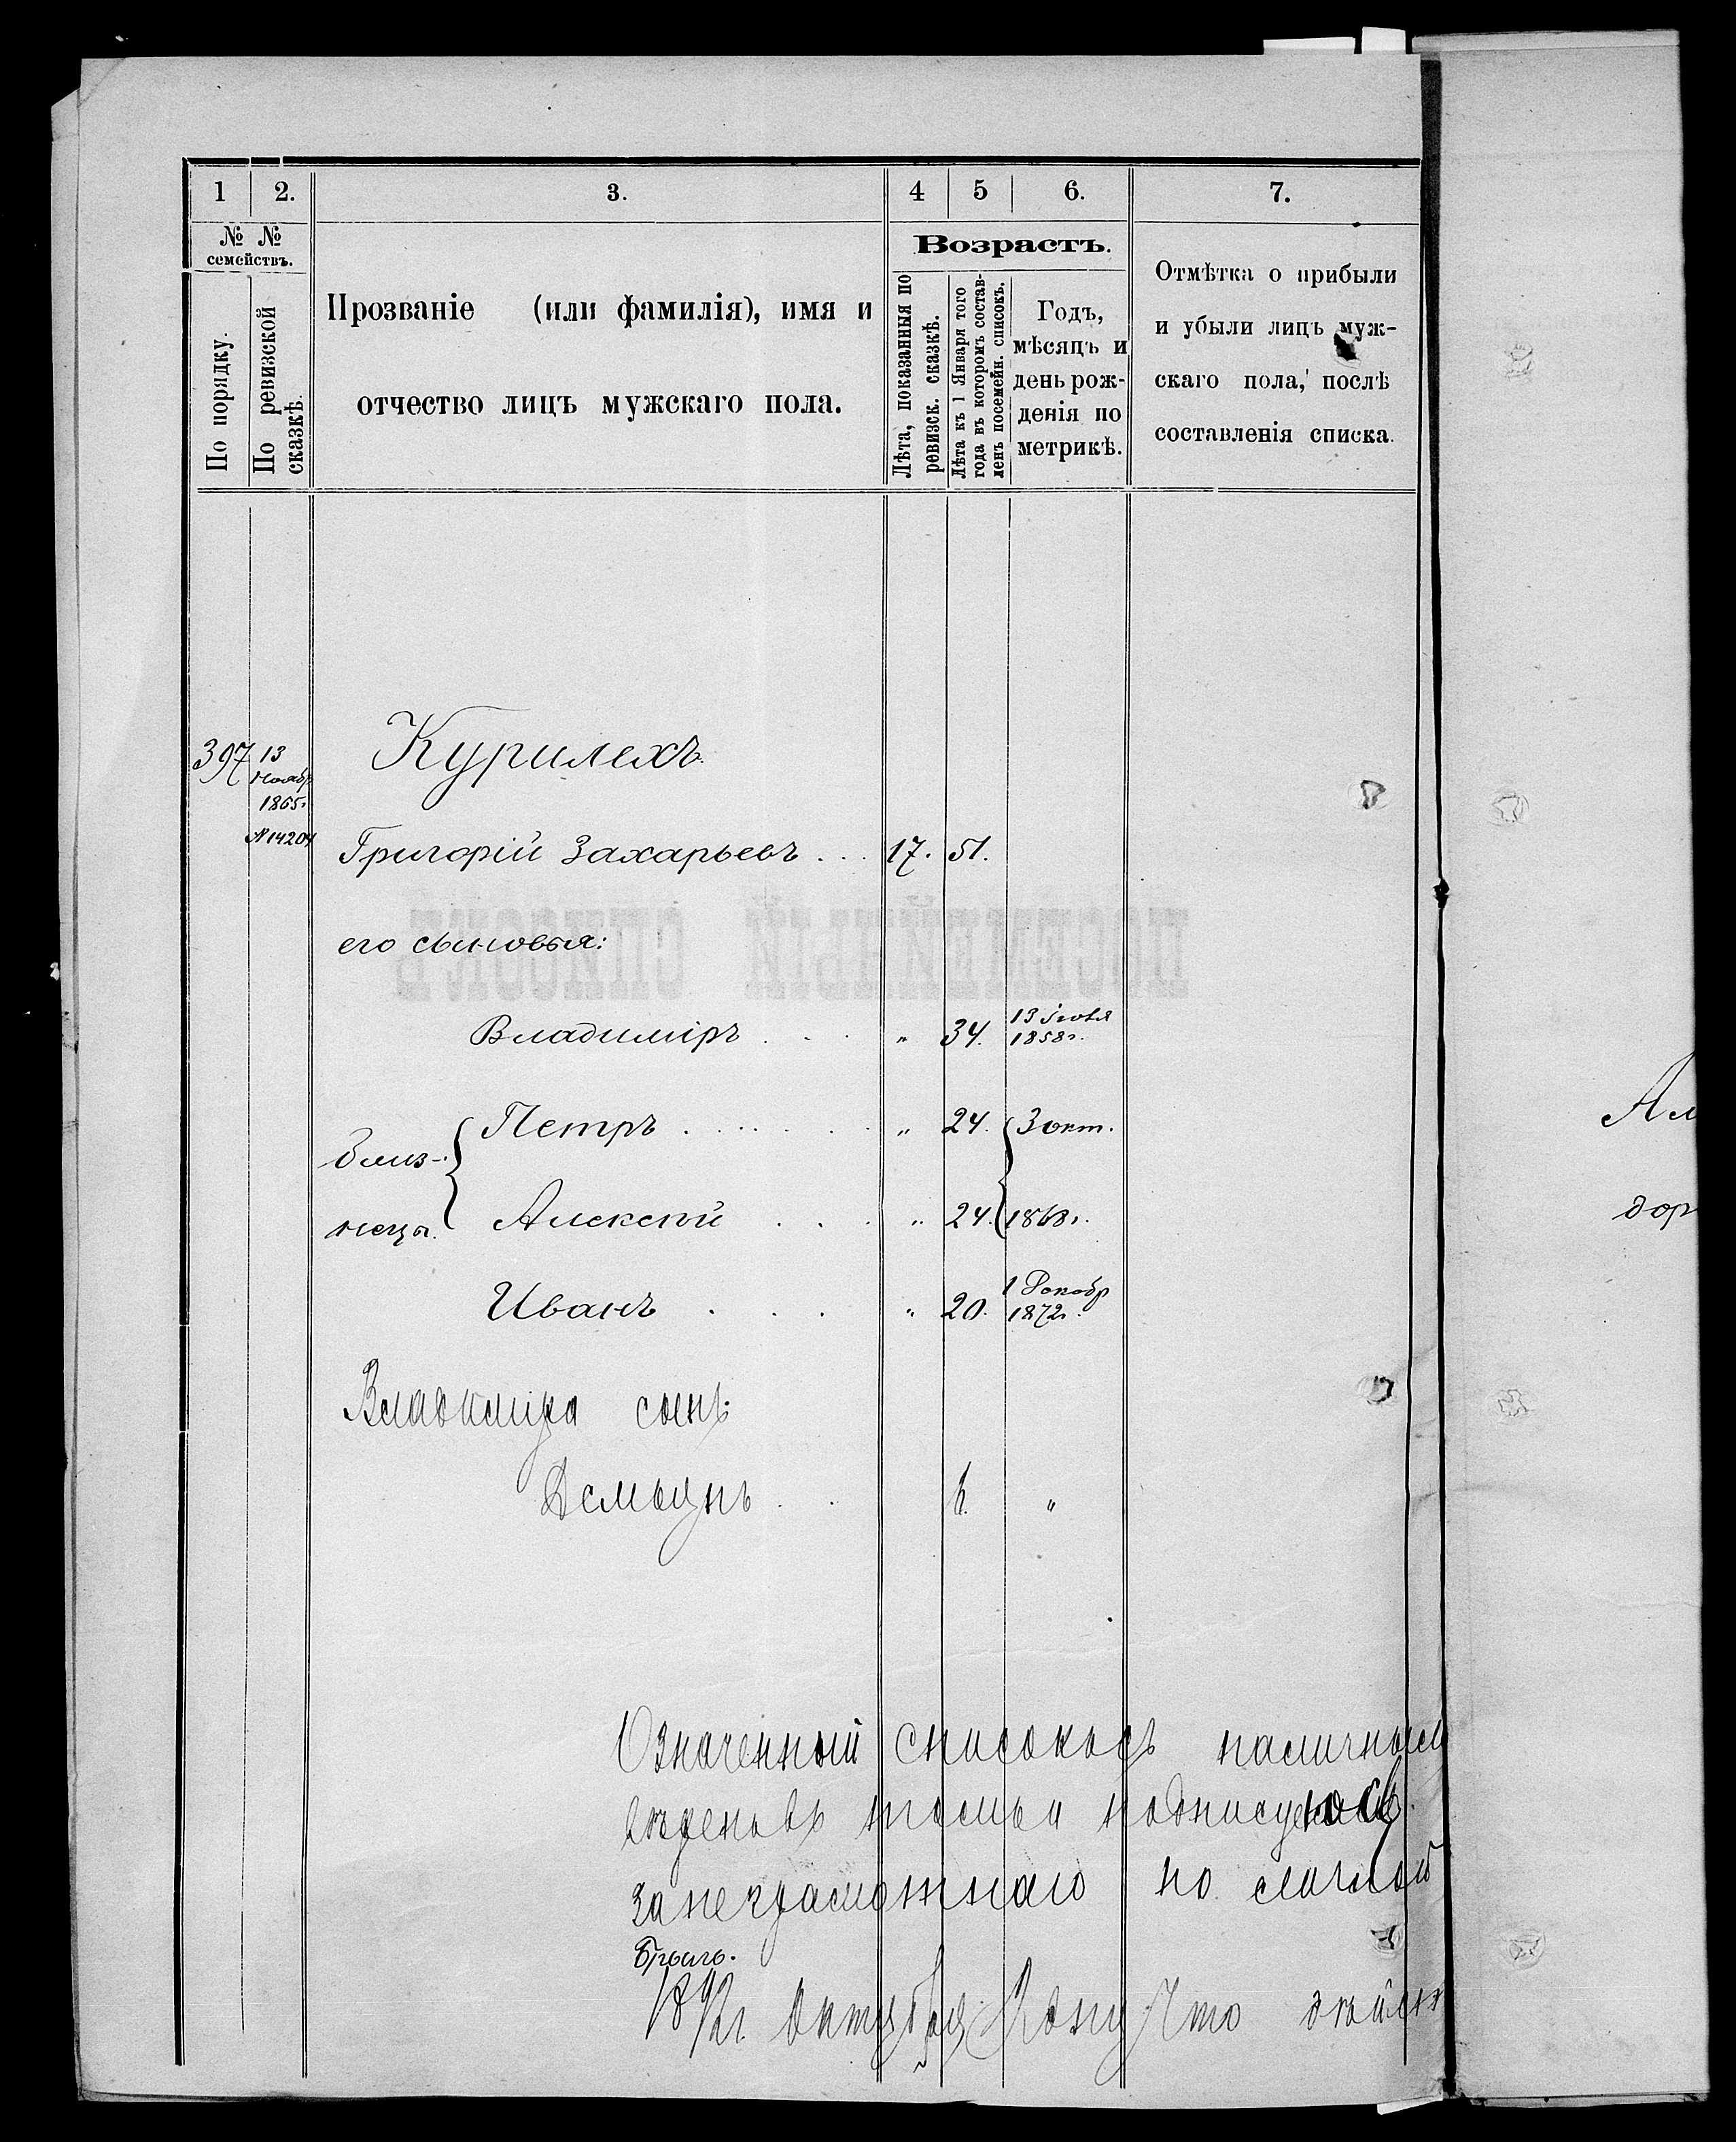 1 2. 3. 4 5 6. 7.
№ №
семействъ.
По порядку.
По ревизской
сказкѣ.
Прозваніе (или фамилія), имя и
отчество лицъ мужскаго пола.
Возрастъ.
Лѣта, показанныя по
ревизск. сказкѣ.
Лѣта къ 1 Января того
года въ которомъ состав-
ленъ посемейн. списокъ.
Годъ,
мѣсяцъ и
день рож-
денія по
метрикѣ.
Отмѣтка о прибыли
и убыли лицъ муж-
скаго пола, послѣ
составленія списка.
397 13 Курилехъ
Ноябр
1865г
№14204
Григорій Захарьевъ . . . 17. 51.
его сыновья:
Владиміръ . . . " 34. 13 Іюля
1858г.
Петръ . . . . . . " 24. 3 окт.
близ-
нецы. Алексѣй . . . " 24. 1868г.
Иванъ . . . " 20. 1 Декабр
1872г.
Владиміра сынъ:
Демьянъ . . 6. "
Означенный списокъ съ наличным
за неграмотнаго по личной
1892г. Октября
Ал
дор
ПОСЕМЕЙНЫЙ СПИСОКЪ